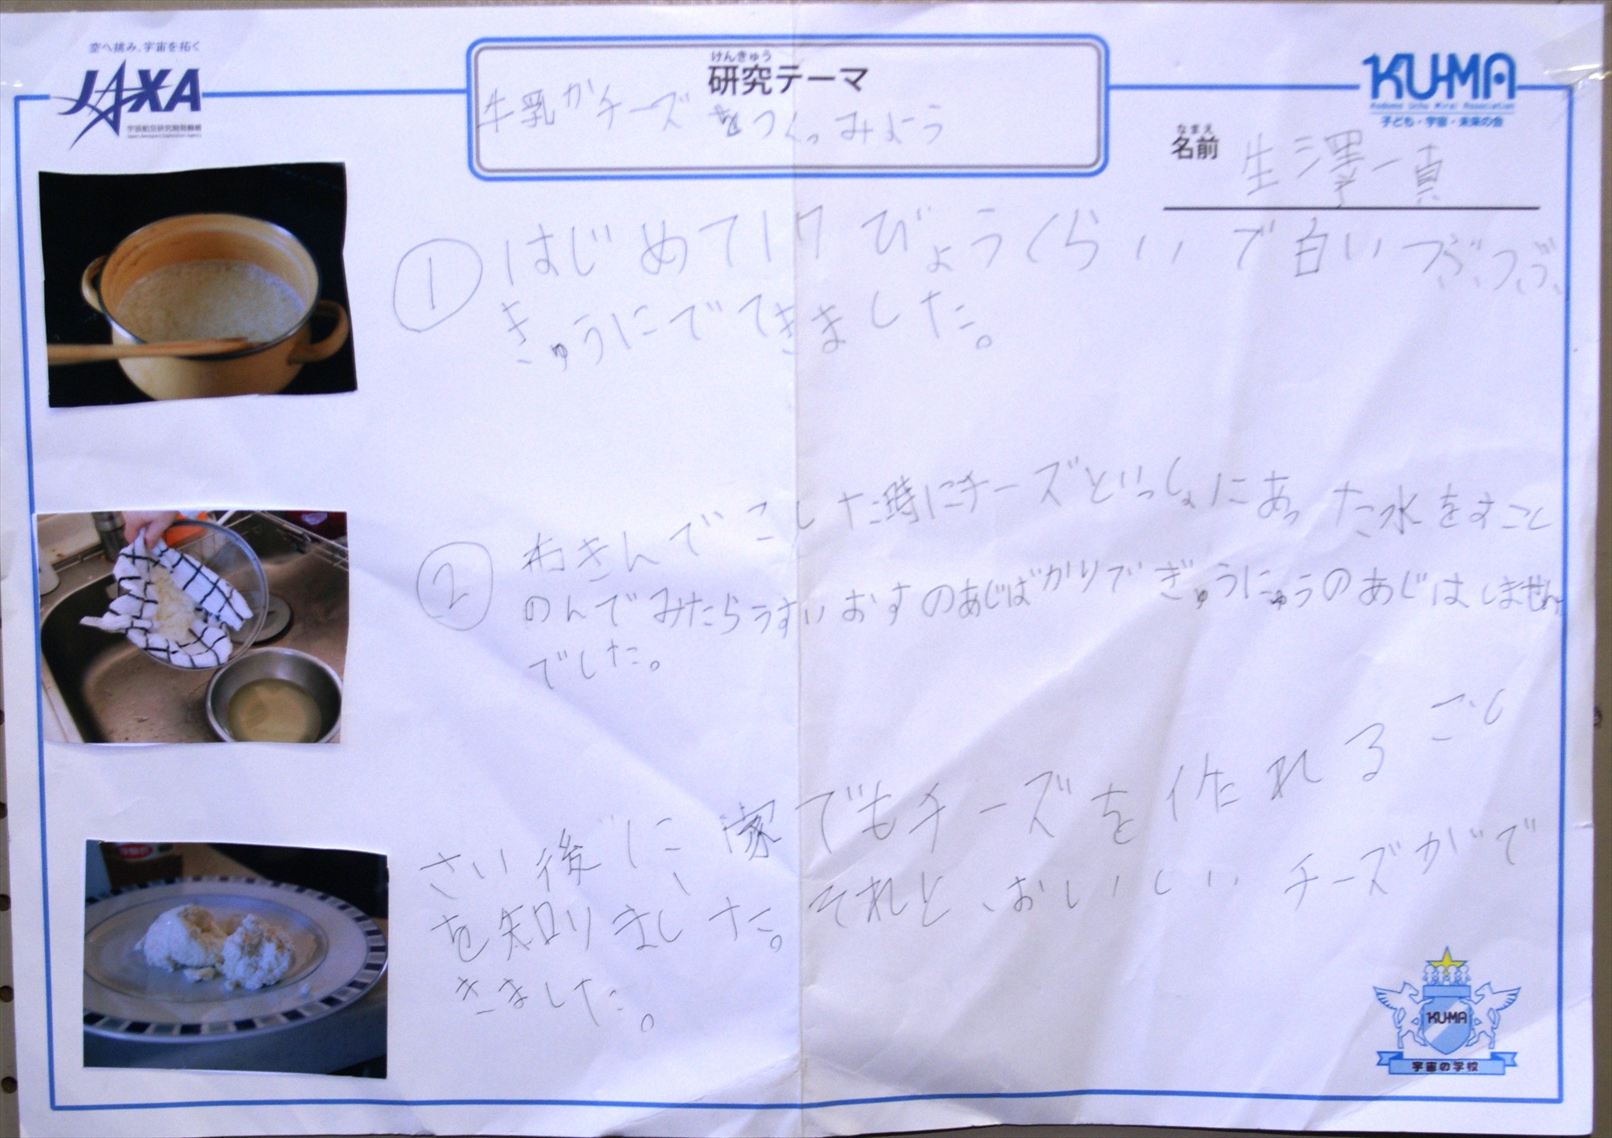 空へ挑み、宇宙を拓く
JAXA
宇宙航空研究開発機構
Japan Aerospace Exploration Agency
けんきゅう
研究テーマ
牛乳がチーズをつくっみよう
KU-MA
Kodomo Uchu Mirai Association
子ども・宇宙・未来の会
なまえ
名前
生澤一真
① はじめて17びょうくらいで白いつぶつぶ
きゅうにでてきました。
② ふきんでこした時にチーズといっしょにあった水をすこし
のんでみたらうすいおすのあじばかりでぎゅうにゅうのあじはしません
でした。
さい後に、家でもチーズを作れるごし
を知りました。それと、おいしいチーズがで
きました。
KU-MA
宇宙の学校